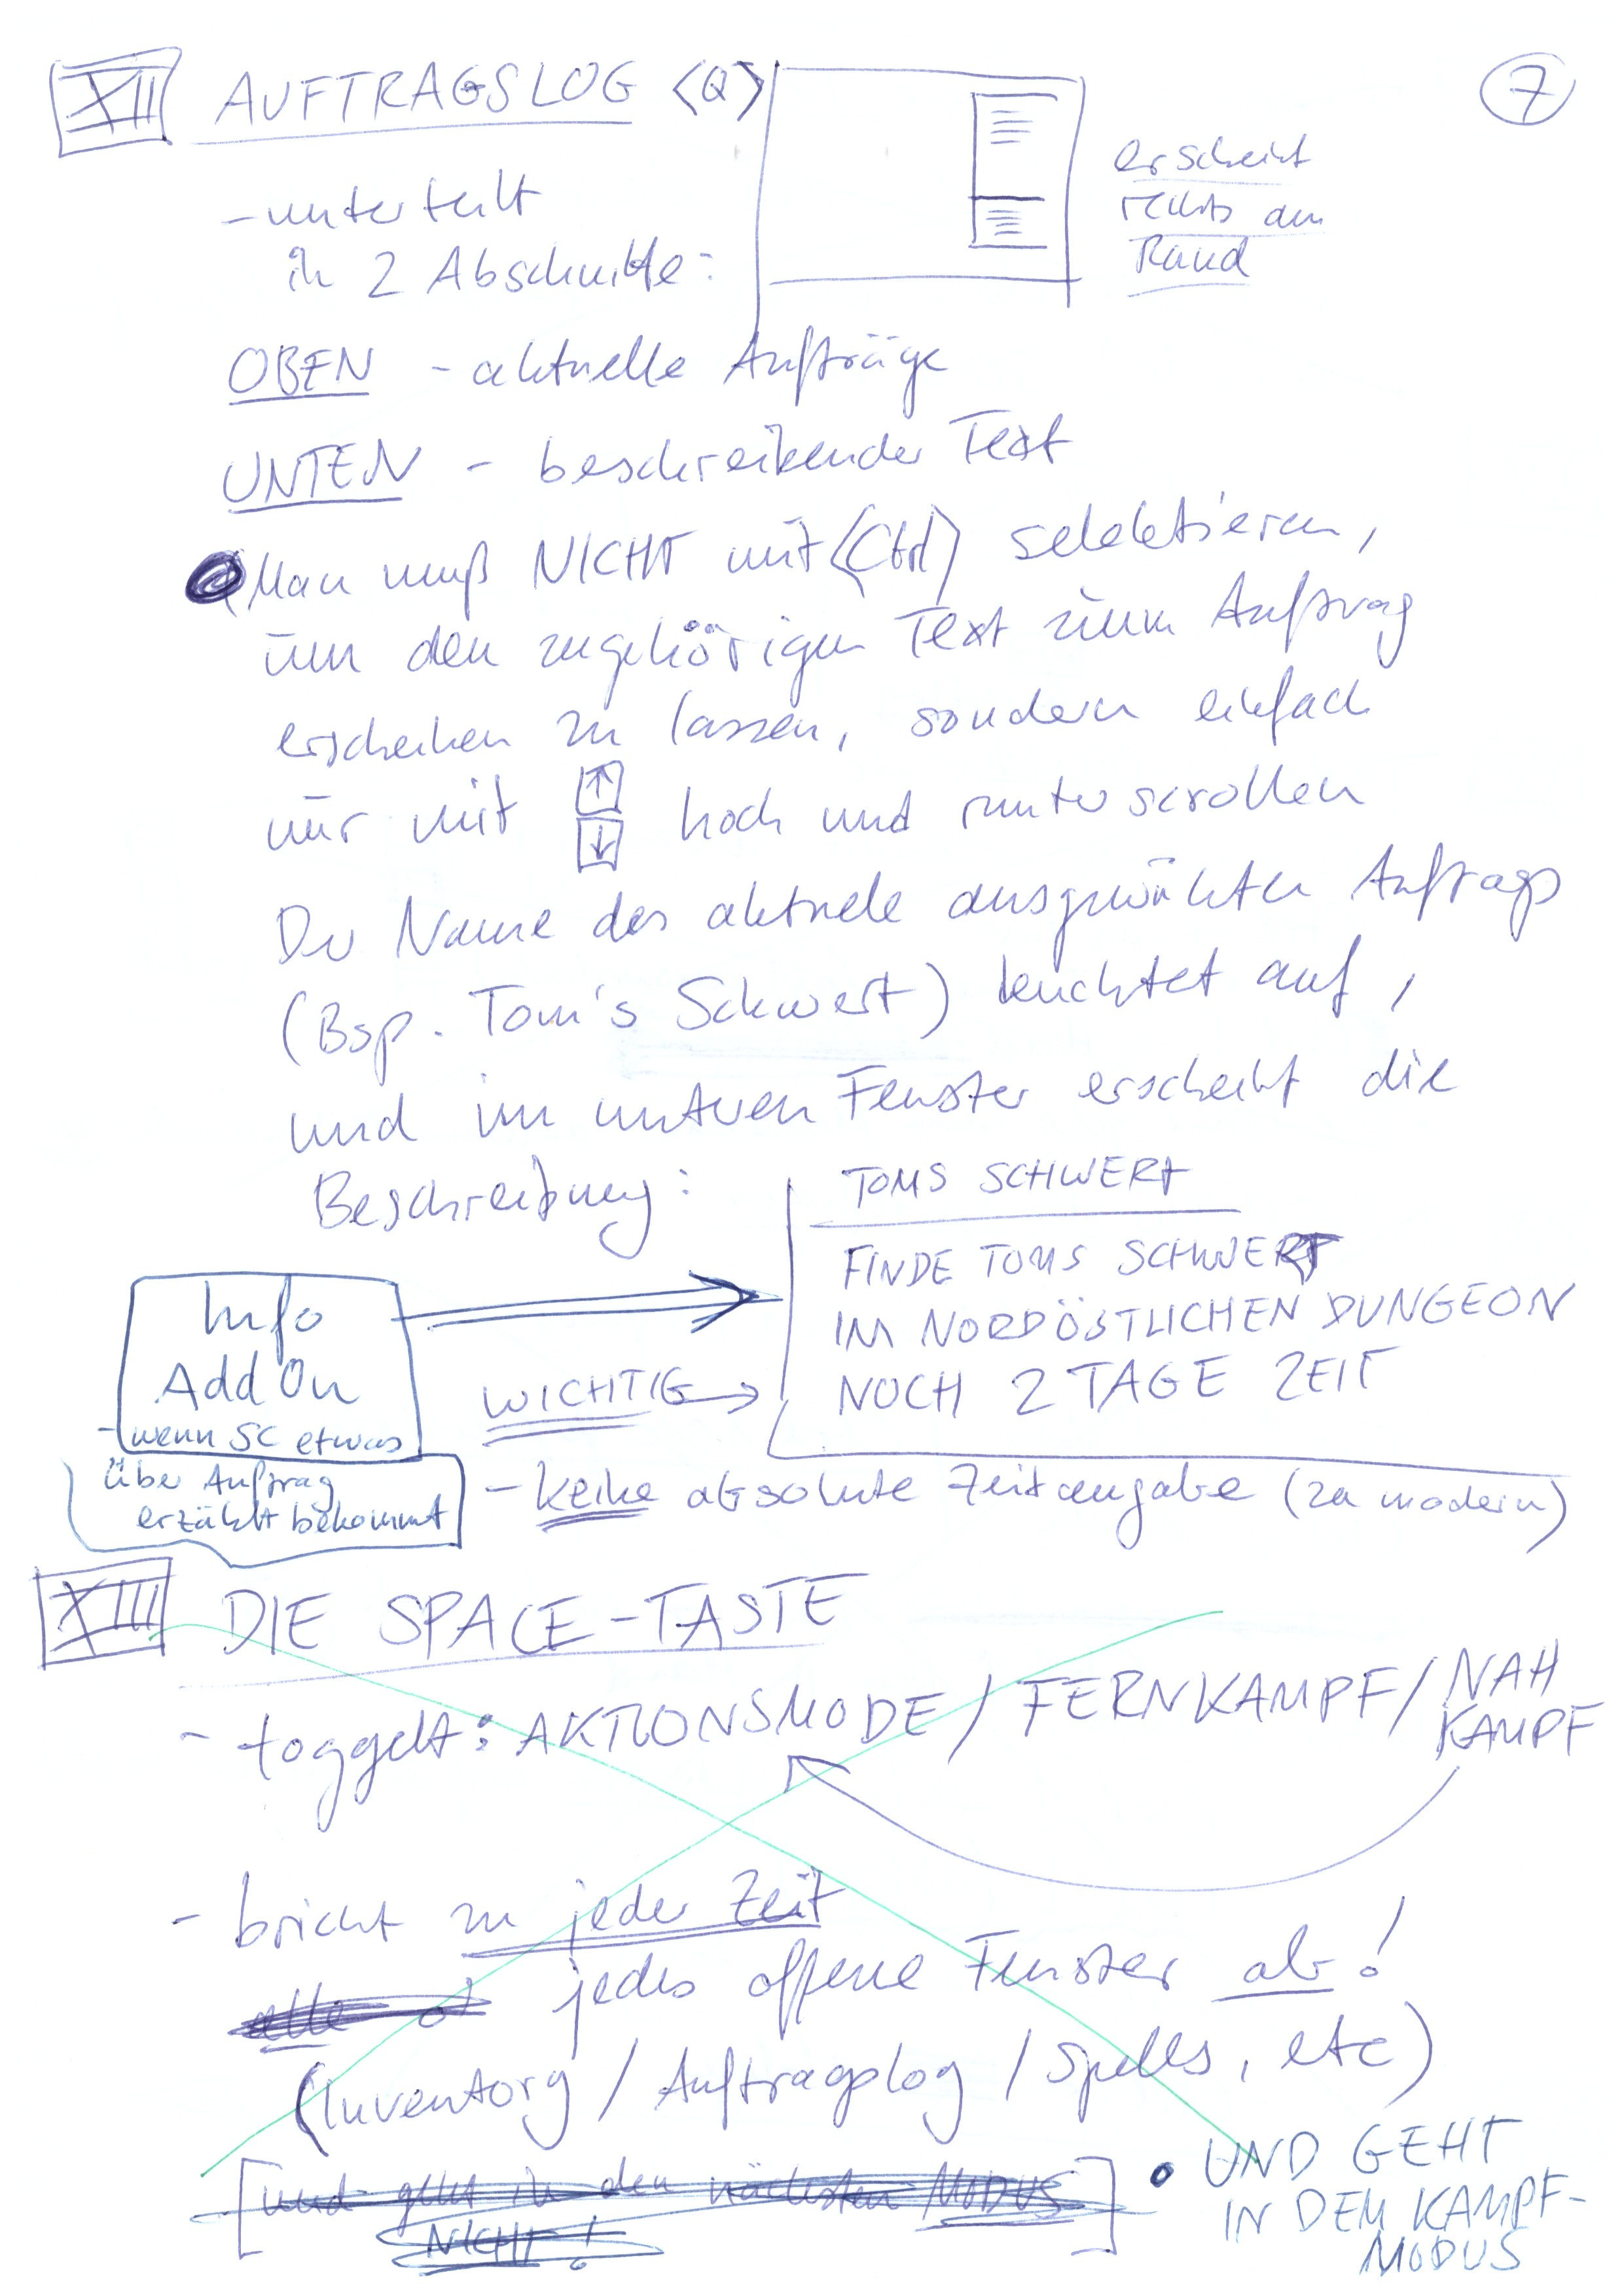 XII AUFTRAGSLOG <Q>
7
erscheint
rechts am
Rand
- unterteilt
in 2 Abschnitte:
OBEN - aktuelle Aufträge
UNTEN - beschreibender Text
Man muß NICHT mit <Ctrl> selektieren,
um den zugehörigen Text zum Auftrag
erscheinen zu lassen, sondern einfach
nur mit ↑ ↓ hoch und runter scrollen
Der Name des aktuele ausgewählten Auftrags
(Bsp. Tom's Schwert) leuchtet auf,
und im unteren Fenster erscheint die
Beschreibung:
TOMS SCHWERT
FINDE TOMS SCHWERT
IM NORDÖSTLICHEN DUNGEON
NOCH 2 TAGE ZEIT
Info
Add On
- wenn SC etwas
über Auftrag
erzählt bekommt
WICHTIG →
- keine absolute Zeitangabe (zu modern)
XIII DIE SPACE-TASTE
- toggelt: AKTIONSMODE / FERNKAMPF / NAH
KAMPF
- bricht zu jeder Zeit
alle jedes offene Fenster ab!
(Inventory / Auftragslog / Spells, etc)
[und geht in den nächsten MODUS
NICHT!]
• UND GEHT
IN DEM KAMPF-
MODUS